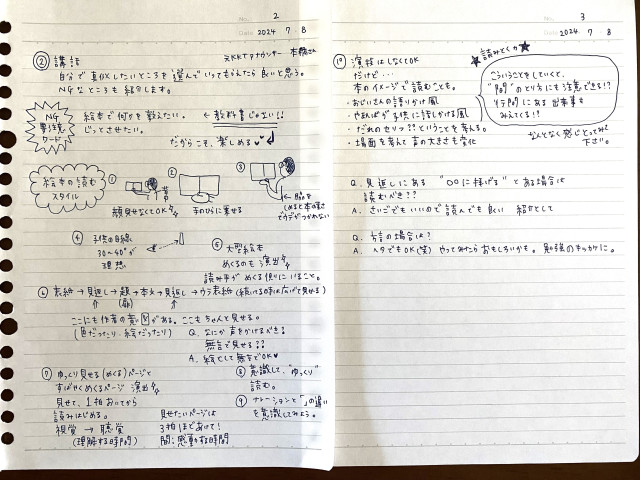 No. 2
Date 2024. 7. 8
② 講話
元KKTアナウンサー 本橋さん
自分で真似したいところを選んでいってもらえたら良いと思う。
NGなところも紹介します。
NG
要注意
ワード
絵本で何かを教えたい。 ← 教科書じゃない!!
じっとさせたい。
だからこそ、楽しめる♥
絵本の読む
スタイル
①
顔見せなくてOK
②
手のひらに乗せる
③
← 脇を
④ 子供の目線
30~40°が
理想
⑤ 大型絵本
めくるのも演出
読み手がめくる側にいること。
⑥ 表紙→見返し→題→本文→見返し→ウラ表紙(続いてる時は広げて見せる)
(扉)
ここにも作者の意図がある。ここもちゃんと見せる。
(色だったり、絵だったり)
Q. なにか声をかけるべき?
無言で見せる??
A. 絵として無言でOK♥
⑦ ゆっくり見せる(めくる)ページと
すばやくめくるページ 演出
見せて、1拍おいてから
読みはじめる。
視覚 → 聴覚
(理解する時間)
見せたいページは
3拍ほどあいて!
間:感動する時間
⑧ 意識して、"ゆっくり"
読む。
⑨ ナレーションと「」の違い
を意識してみよう。
No. 3
Date 2024. 7. 8
⑩ 演技はしなくてOK
だけど…
本のイメージで読むことも。
・おじいさんの語りかけ風
・やまんばが子供に話しかける風
・だれのセリフ??ということを考える。
・場面を考えて声の大きさも変化
★読みとく力★
こういうことをしていくと、
"間"のとり方にも注意できる!?
行間にある出来事も
みえてくる!?
なんとなく感じとってみて
下さい。
Q. 見返しにある "〇〇に捧げる" とある場合は
読むべき??
A. さいごでもいいので読んでも良い 紹介として
Q. 方言の場合は?
A. ヘタでもOK(笑) やってみたらおもしろいかも。勉強のキッカケに。